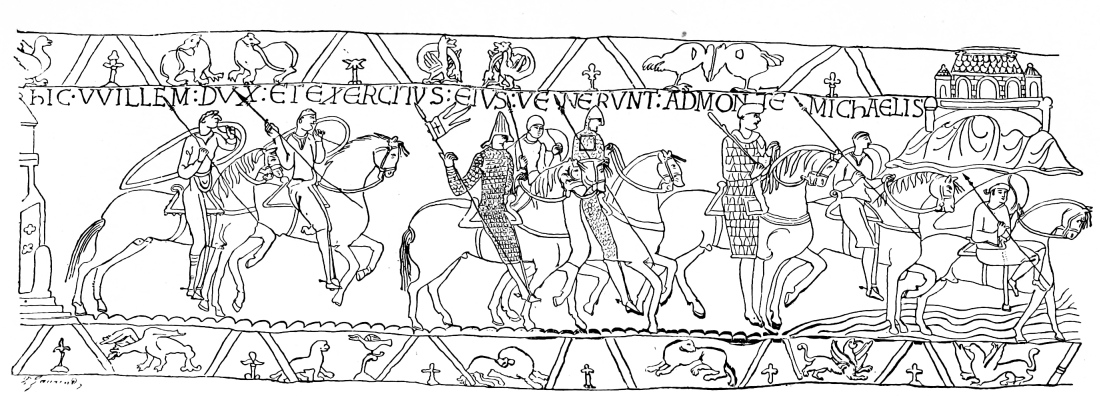 HIC·VVILLEM:DVX:ETEXERCITVS:EIVS:VENERVNT:ADMONTE MICHAELIS